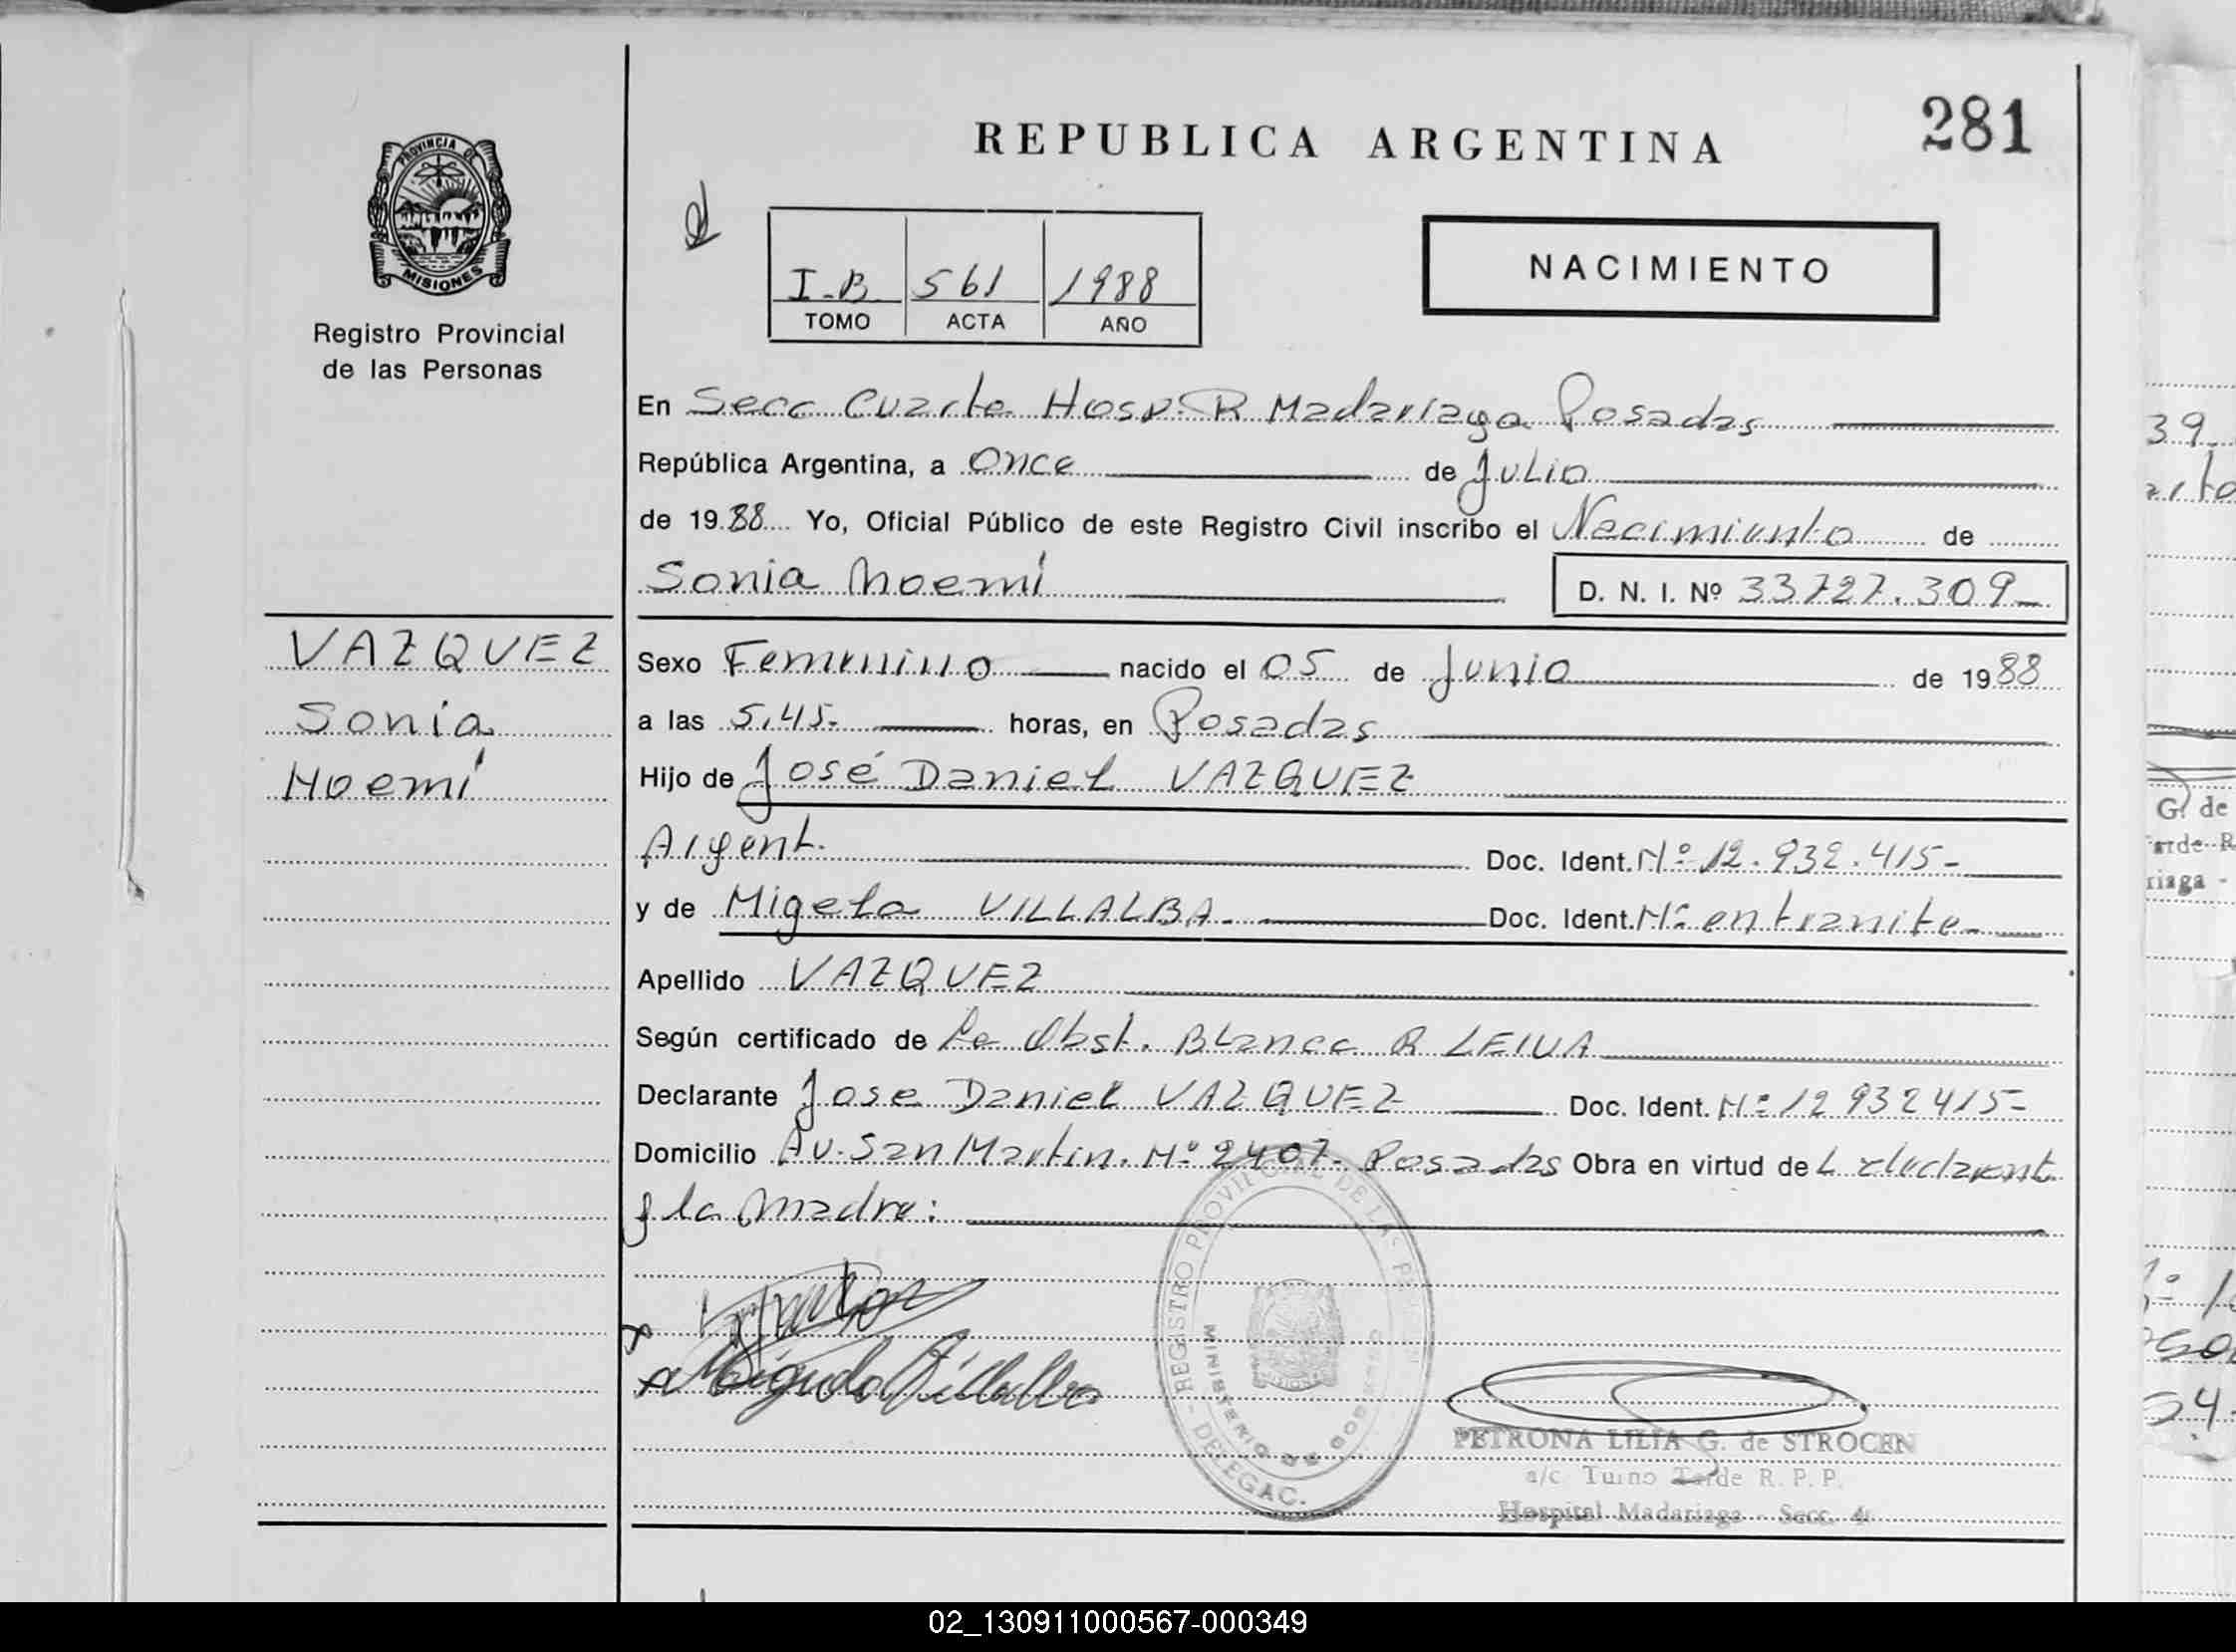 281
REPUBLICA ARGENTINA
PROVINCIA DE
MISIONES
Registro Provincial
de las Personas
I-B 561 1988
TOMO ACTA AÑO
NACIMIENTO
En Secc Cuarta Hosp. R Madariaga Posadas
República Argentina, a Once de Julio
de 1988 Yo, Oficial Público de este Registro Civil inscribo el Nacimiento de
Sonia Noemí D. N. I. Nº 33727.309-
VAZQUEZ
Sonia
Noemí
Sexo Femenino nacido el 05 de Junio de 1988
a las 5.45- horas, en Posadas
Hijo de José Daniel VAZQUEZ
Argent. Doc. Ident. Nº 12.932.415-
y de Migela VILLALBA- Doc. Ident. Nº en tramite-
Apellido VAZQUEZ
Según certificado de La Obst. Blanca R LEIVA
Declarante Jose Daniel VAZQUEZ Doc. Ident. Nº 12 932415-
Domicilio Av. San Martin. Nº 2407- Posadas Obra en virtud de L declarant
y la madre:
Miguela Villalba
REGISTRO PROVINCIAL DE LAS
MINISTERIO DE GOB
DELEGAC.
PETRONA LILIA G. de STROCEN
a/c Turno Tarde R. P. P.
Hospital Madariaga - Secc. 4
39
G. de
arde R
riaga -
54
02_130911000567-000349